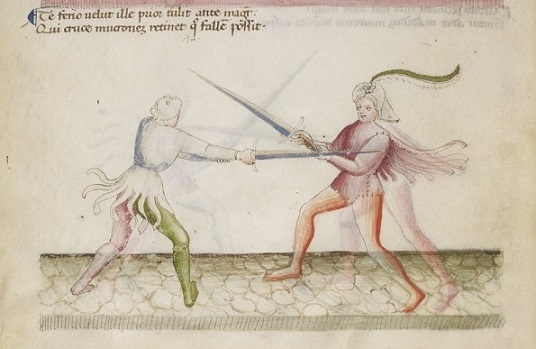 Te ferio velut ille prior tulit ante magr̄.
Qui cruce mucronez retinet q̄ fallē possit.